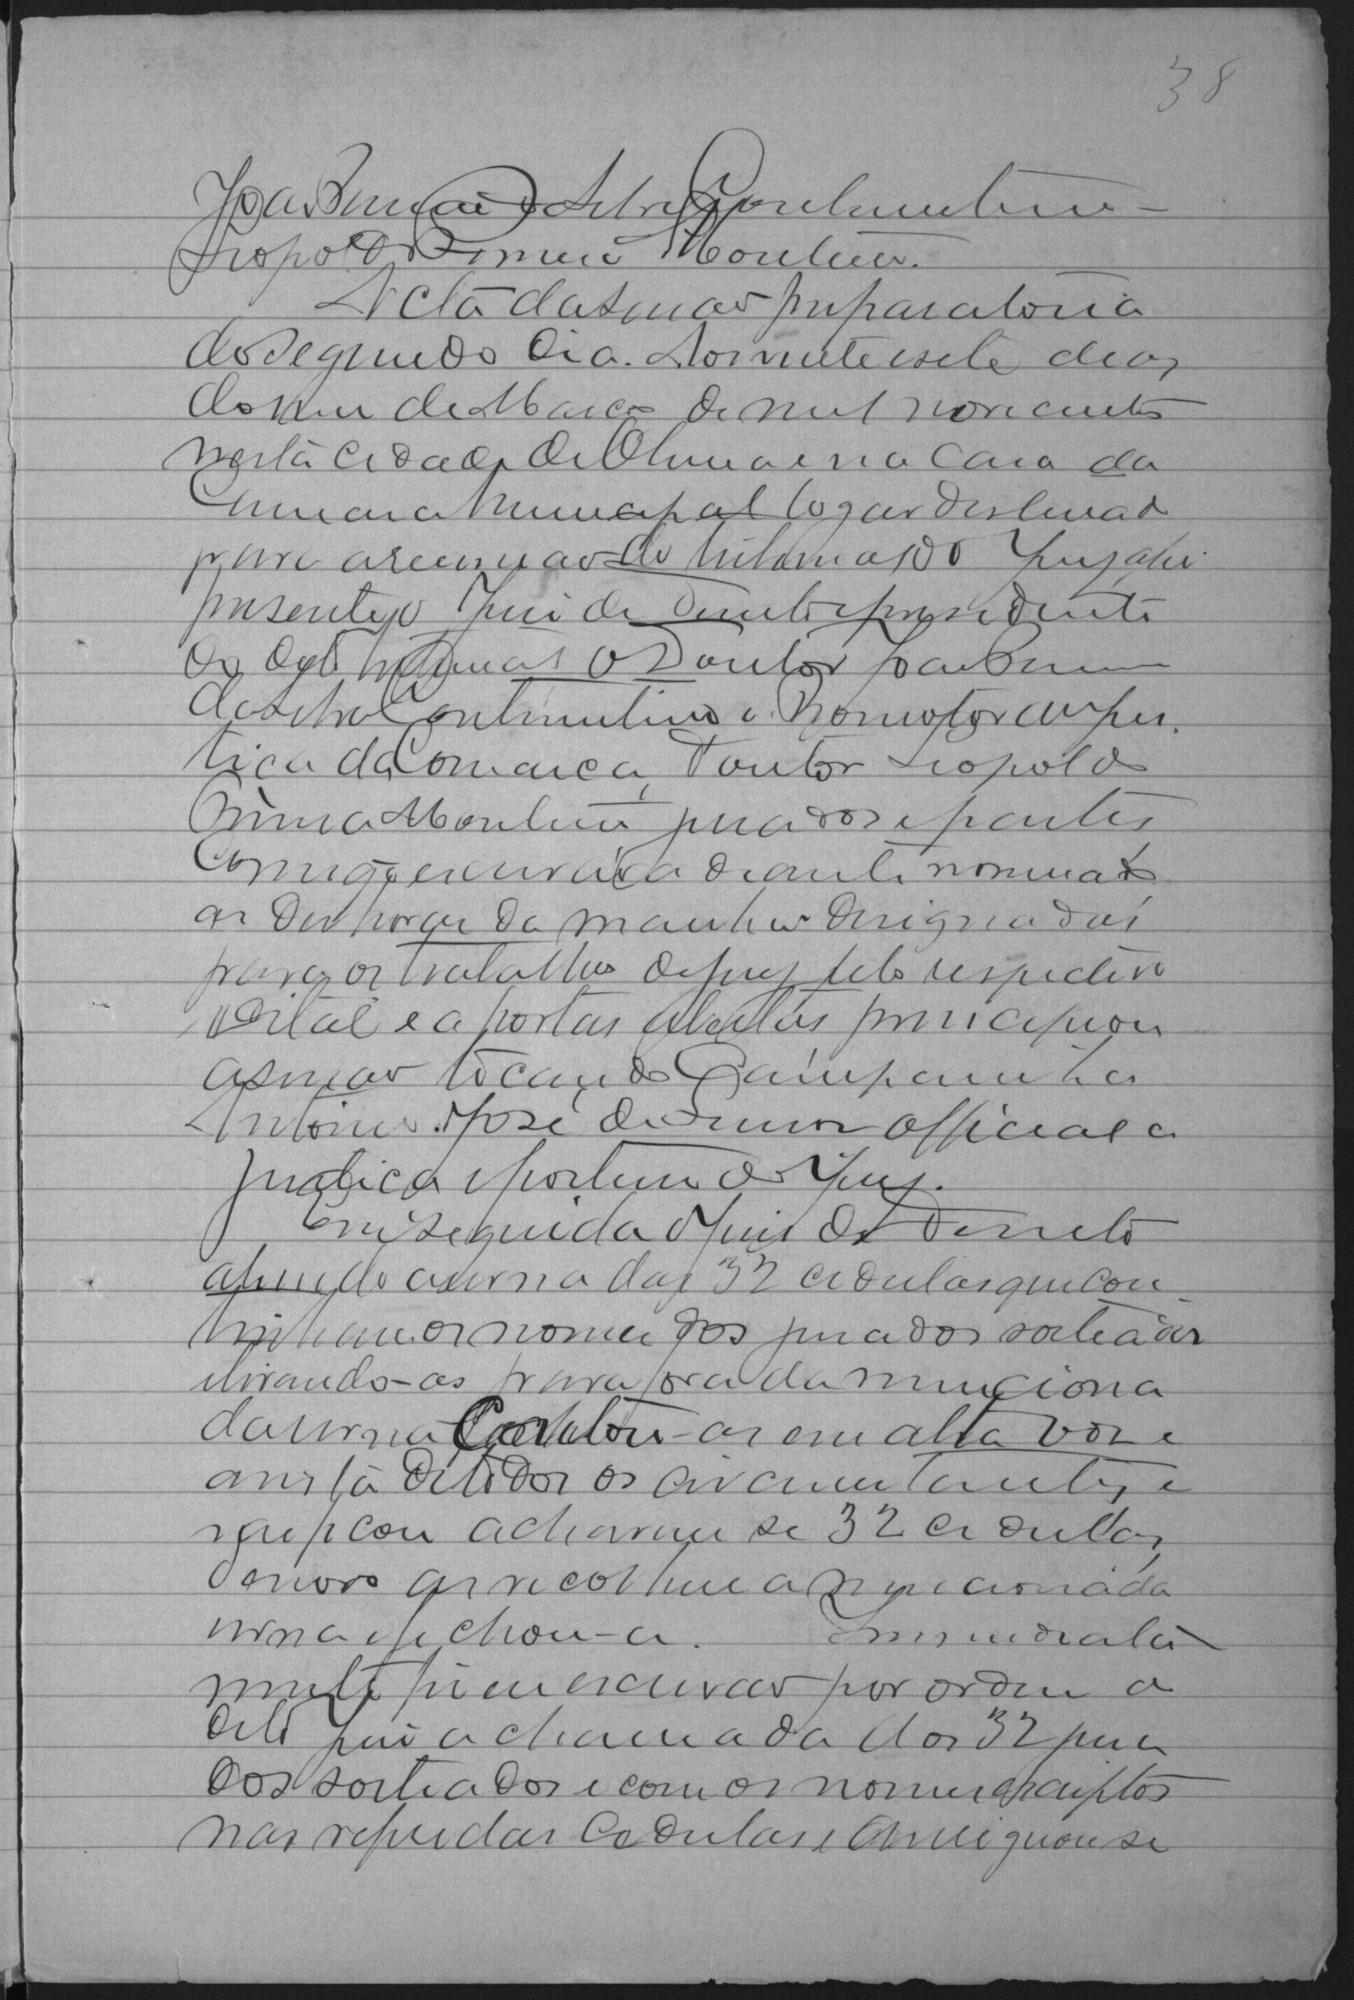 38
João da Silva Contumetino
Leopoldo Monteiro.
Acta da sessão preparatoria
do segundo dia. Aos vinte e sete dias
do mez de Março de mil novecentos
nesta cidade de e na Casa da
Camara Municipal logar destinado
para a reunião do tribunal do Jury ahi
presente o Juiz de Direito e presidente
do dito tribunal o Doutor João
da Silva o Promotor da Jus-
tiça da Comarca, Doutor Leopoldo
Monteiro jurados e partes
Comigo escrivão adiante nomeado
as dez horas da manhã designadas
para os trabalhos do jury pelo respectivo
edital e a portas abertas principiou
a sessão tocando a Campainha
Antonio José de official a
justiça e porteiro do Jury.
Em seguida o Juiz de Direito
abrindo a urna das 32 cedulas que con-
tinham os nomes dos jurados sorteados
e tirando-as para fora da menciona
da urna Contou-as em alta voz e
a vista de todos os circumstantes e
verificou acharem se 32 cedulas,
de novo as recolheu a mencionada
urna e fechou-a. Immediata
mente fiz eu escrivão por ordem do
dito Juiz a chamada dos 32 jura
dos sorteados e com os nomes escriptos
nas referidas Cedulas e averiguou se